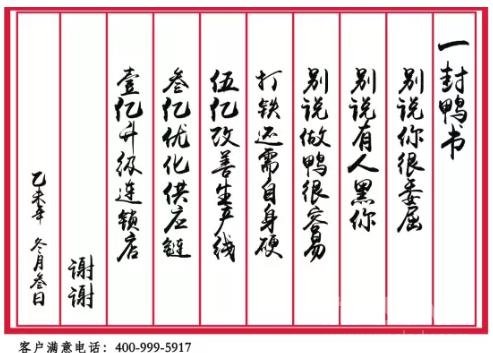 一封鸭书
别说你很委屈
别说有人黑你
别说做鸭很容易
打铁还需自身硬
伍亿改善生产线
叁亿优化供应链
壹亿升级连锁店
谢谢
乙未年 冬月叁日
客户满意电话：400-999-5917